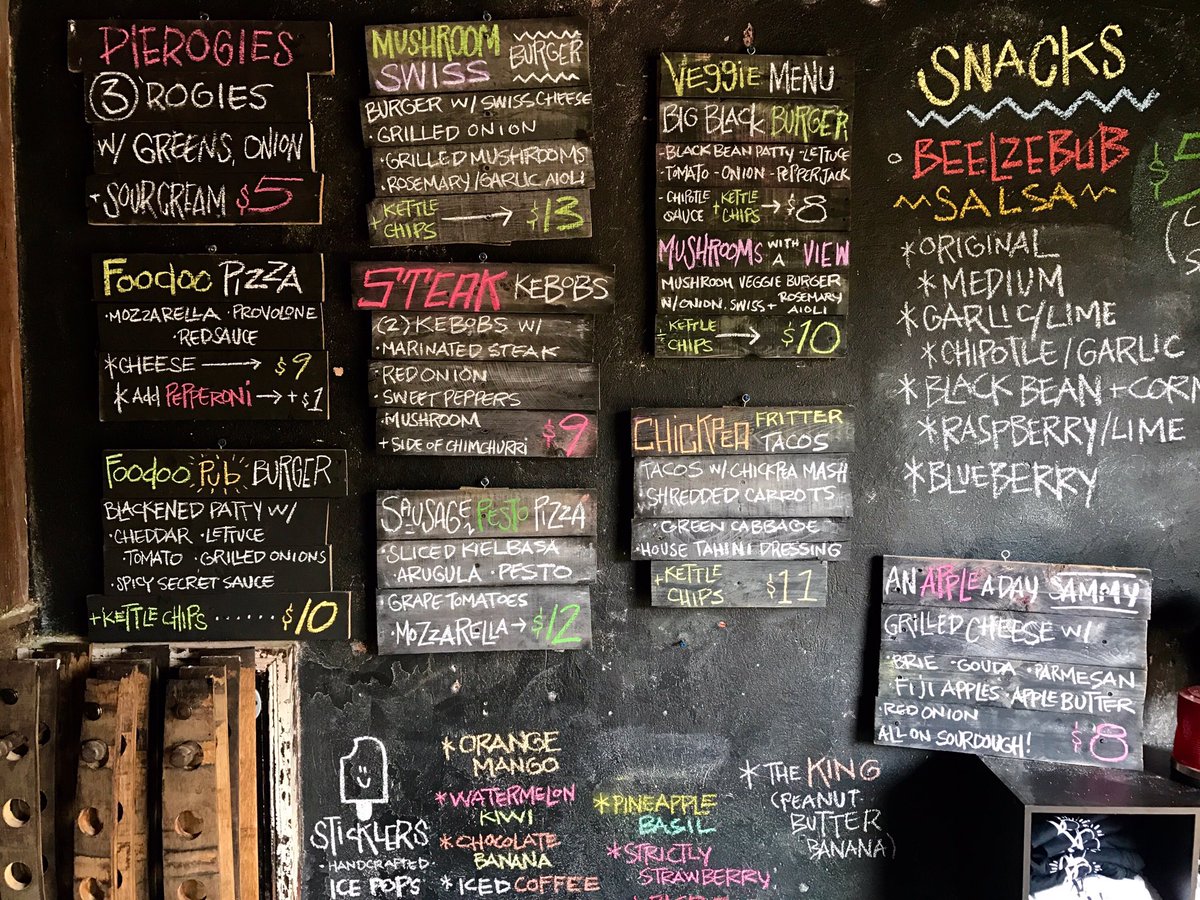 PIEROGIES
③'ROGIES
W/ GREENS, ONION
+ SOUR CREAM $5
Foodoo PIZZA
•MOZZARELLA •PROVOLONE
•RED SAUCE
*CHEESE → $9
*Add PEPPERONI → +$1
Foodoo Pub BURGER
BLACKENED PATTY W/
•CHEDDAR •LETTUCE
TOMATO •GRILLED ONIONS
•SPICY SECRET SAUCE
+KETTLE CHIPS ...... $10
MUSHROOM
SWISS BURGER
BURGER W/ SWISS CHEESE
•GRILLED ONION
•GRILLED MUSHROOMS
•ROSEMARY/GARLIC AIOLI
+KETTLE
CHIPS → $13
STEAK KEBOBS
(2) KEBOBS W/
•MARINATED STEAK
•RED ONION
•SWEET PEPPERS
•MUSHROOM
+ SIDE OF CHIMCHURRI $9
SAUSAGE PESTO PIZZA
•SLICED KIELBASA
•ARUGULA •PESTO
GRAPE TOMATOES
•MOZZARELLA → $12
VEGGIE MENU
BIG BLACK BURGER
-BLACK BEAN PATTY -LETTUCE
-TOMATO -ONION -PEPPERJACK
-CHIPOTLE
SAUCE +KETTLE
CHIPS → $8
MUSHROOMS WITH A VIEW
MUSHROOM VEGGIE BURGER
W/ONION, SWISS + ROSEMARY
AIOLI
+KETTLE
CHIPS → $10
CHICKPEA FRITTER
TACOS
TACOS W/ CHICKPEA MASH
•SHREDDED CARROTS
•GREEN CABBAGE
•HOUSE TAHINI DRESSING
+KETTLE
CHIPS $11
SNACKS
BEELZEBUB
SALSA
$5
*ORIGINAL
*MEDIUM
*GARLIC/LIME
*CHIPOTLE/GARLIC
*BLACK BEAN + CORN
*RASPBERRY/LIME
*BLUEBERRY
AN APPLE A DAY SAMMY
GRILLED CHEESE W/
•BRIE •GOUDA •PARMESAN
•FIJI APPLES •APPLE BUTTER
•RED ONION
ALL ON SOURDOUGH! $8
STICKLERS
•HANDCRAFTED•
ICE POPS
*ORANGE
MANGO
*WATERMELON
KIWI
*CHOCOLATE
BANANA
*ICED COFFEE
*PINEAPPLE
BASIL
*STRICTLY
STRAWBERRY
*THE KING
(PEANUT-
BUTTER
BANANA)